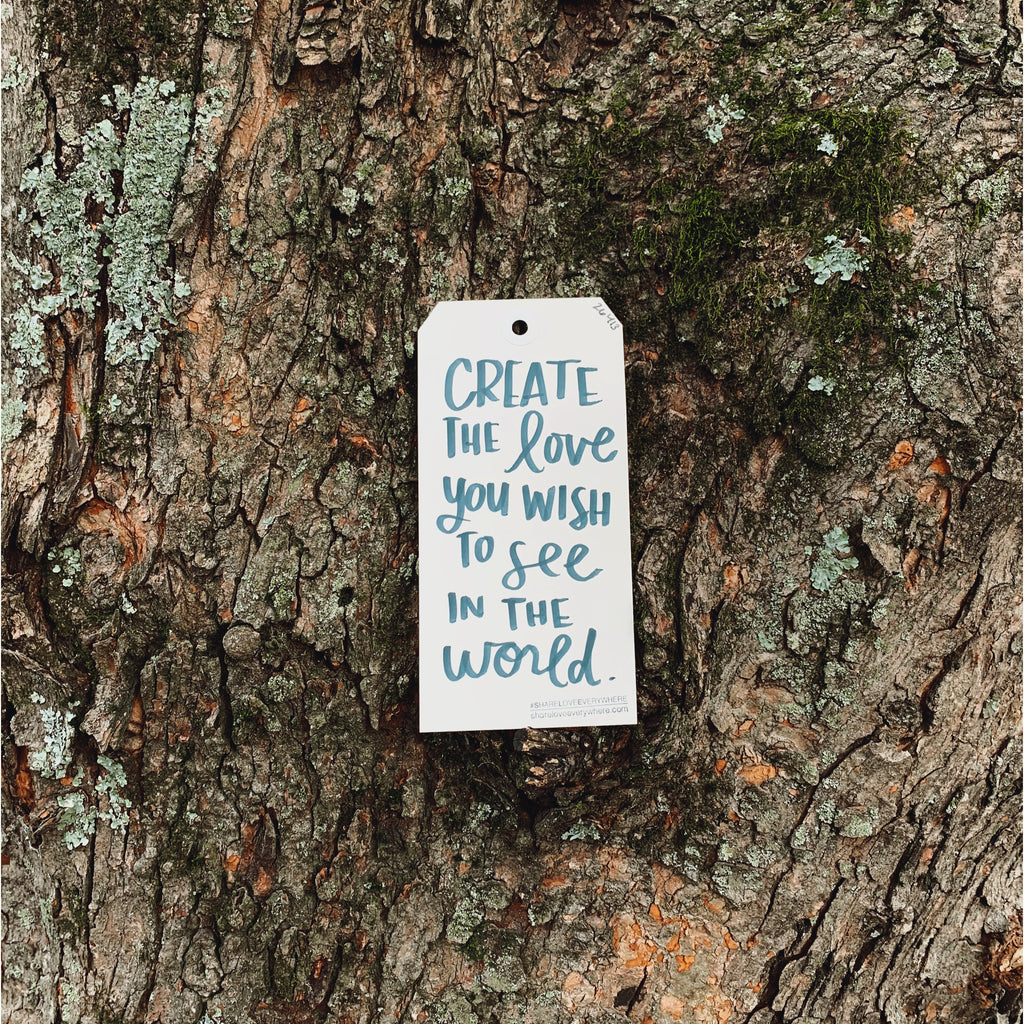 26413
CREATE
THE love
you WISH
TO see
IN THE
world.
#SHARELOVEEVERYWHERE
shareloveeverywhere.com